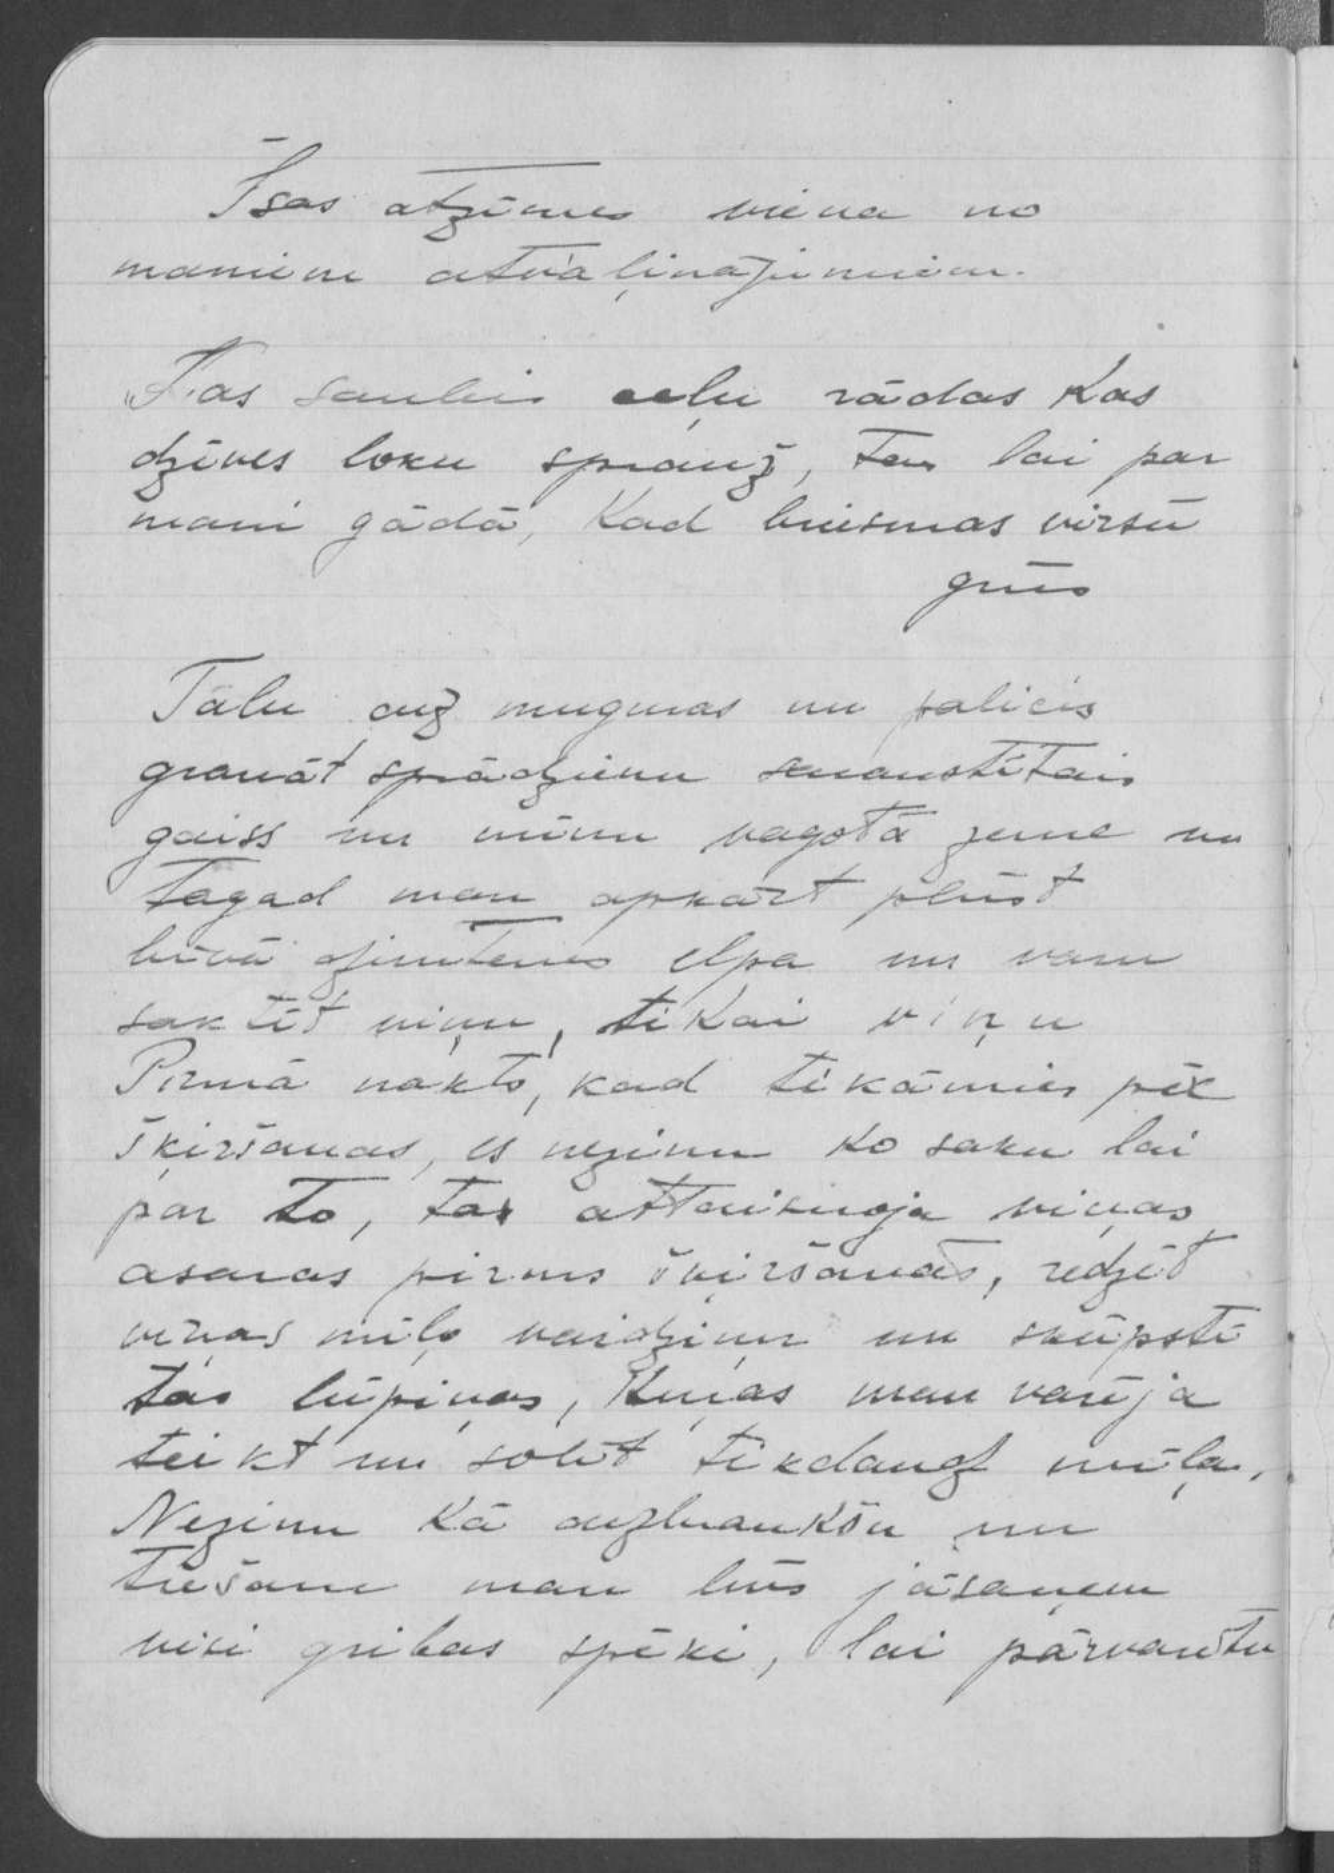 Īsas atzīmes viena no
maniem atvaļinājumiem.
„Kas saulei ceļu rādas kas
dzīves loku sprauž, tas lai par
mani gādā, kad briesmas virsū
grūs
Tālu aiz muguras nu palicis
granāt sprādzienu
gaiss un mīnu vagotā zeme un
tagad man apkārt plūst
brīvā dzimtenes elpa un varu
saktīt viņu, tikai viņu
Pirmā nakts, kad tikāmies pēc
šķiršanas, es nezinu ko saku lai
par to, tas attaisnoja viņas
asaras pirms šķiršanās, redzēt
viņas mīļo vaidziņu un skūpstī
tās lūpiņas, kuŗas man varēja
teikt un solīt tikdaudz mīļa.
Nezinu kā aizbraukšu un
tiešam man būs jāsaņem
visi gribas spēki, lai pārvarētu